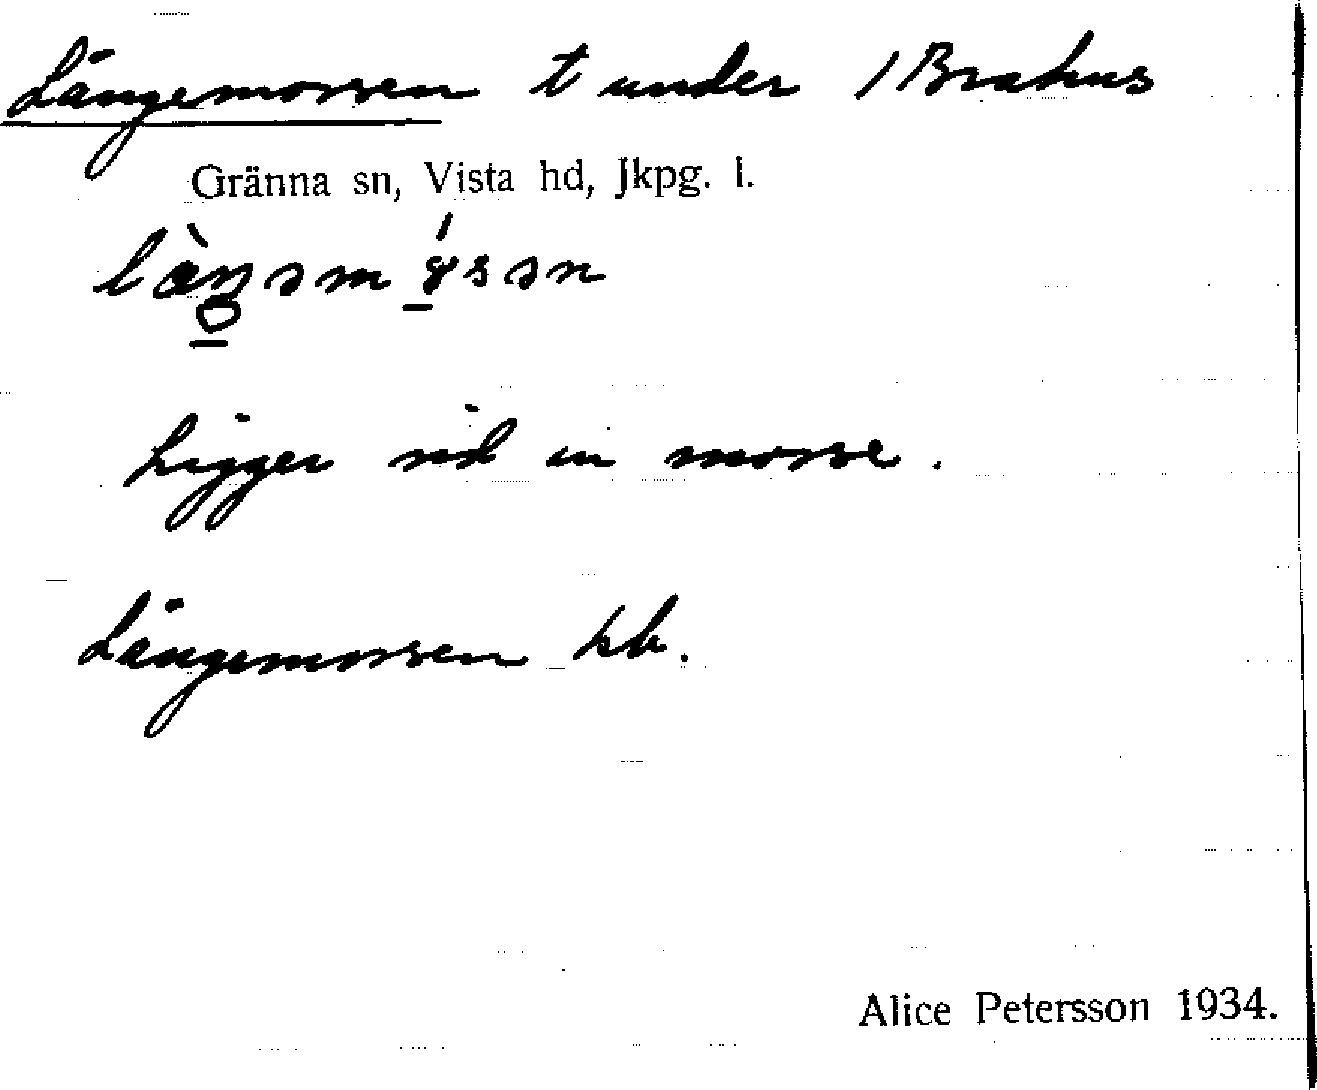 Längemossen t under 1 Brahus
Gränna sn, Vista hd, Jkpg. l.
Ligger vid en mosse.
Längemossen hb.
Alice Petersson 1934.